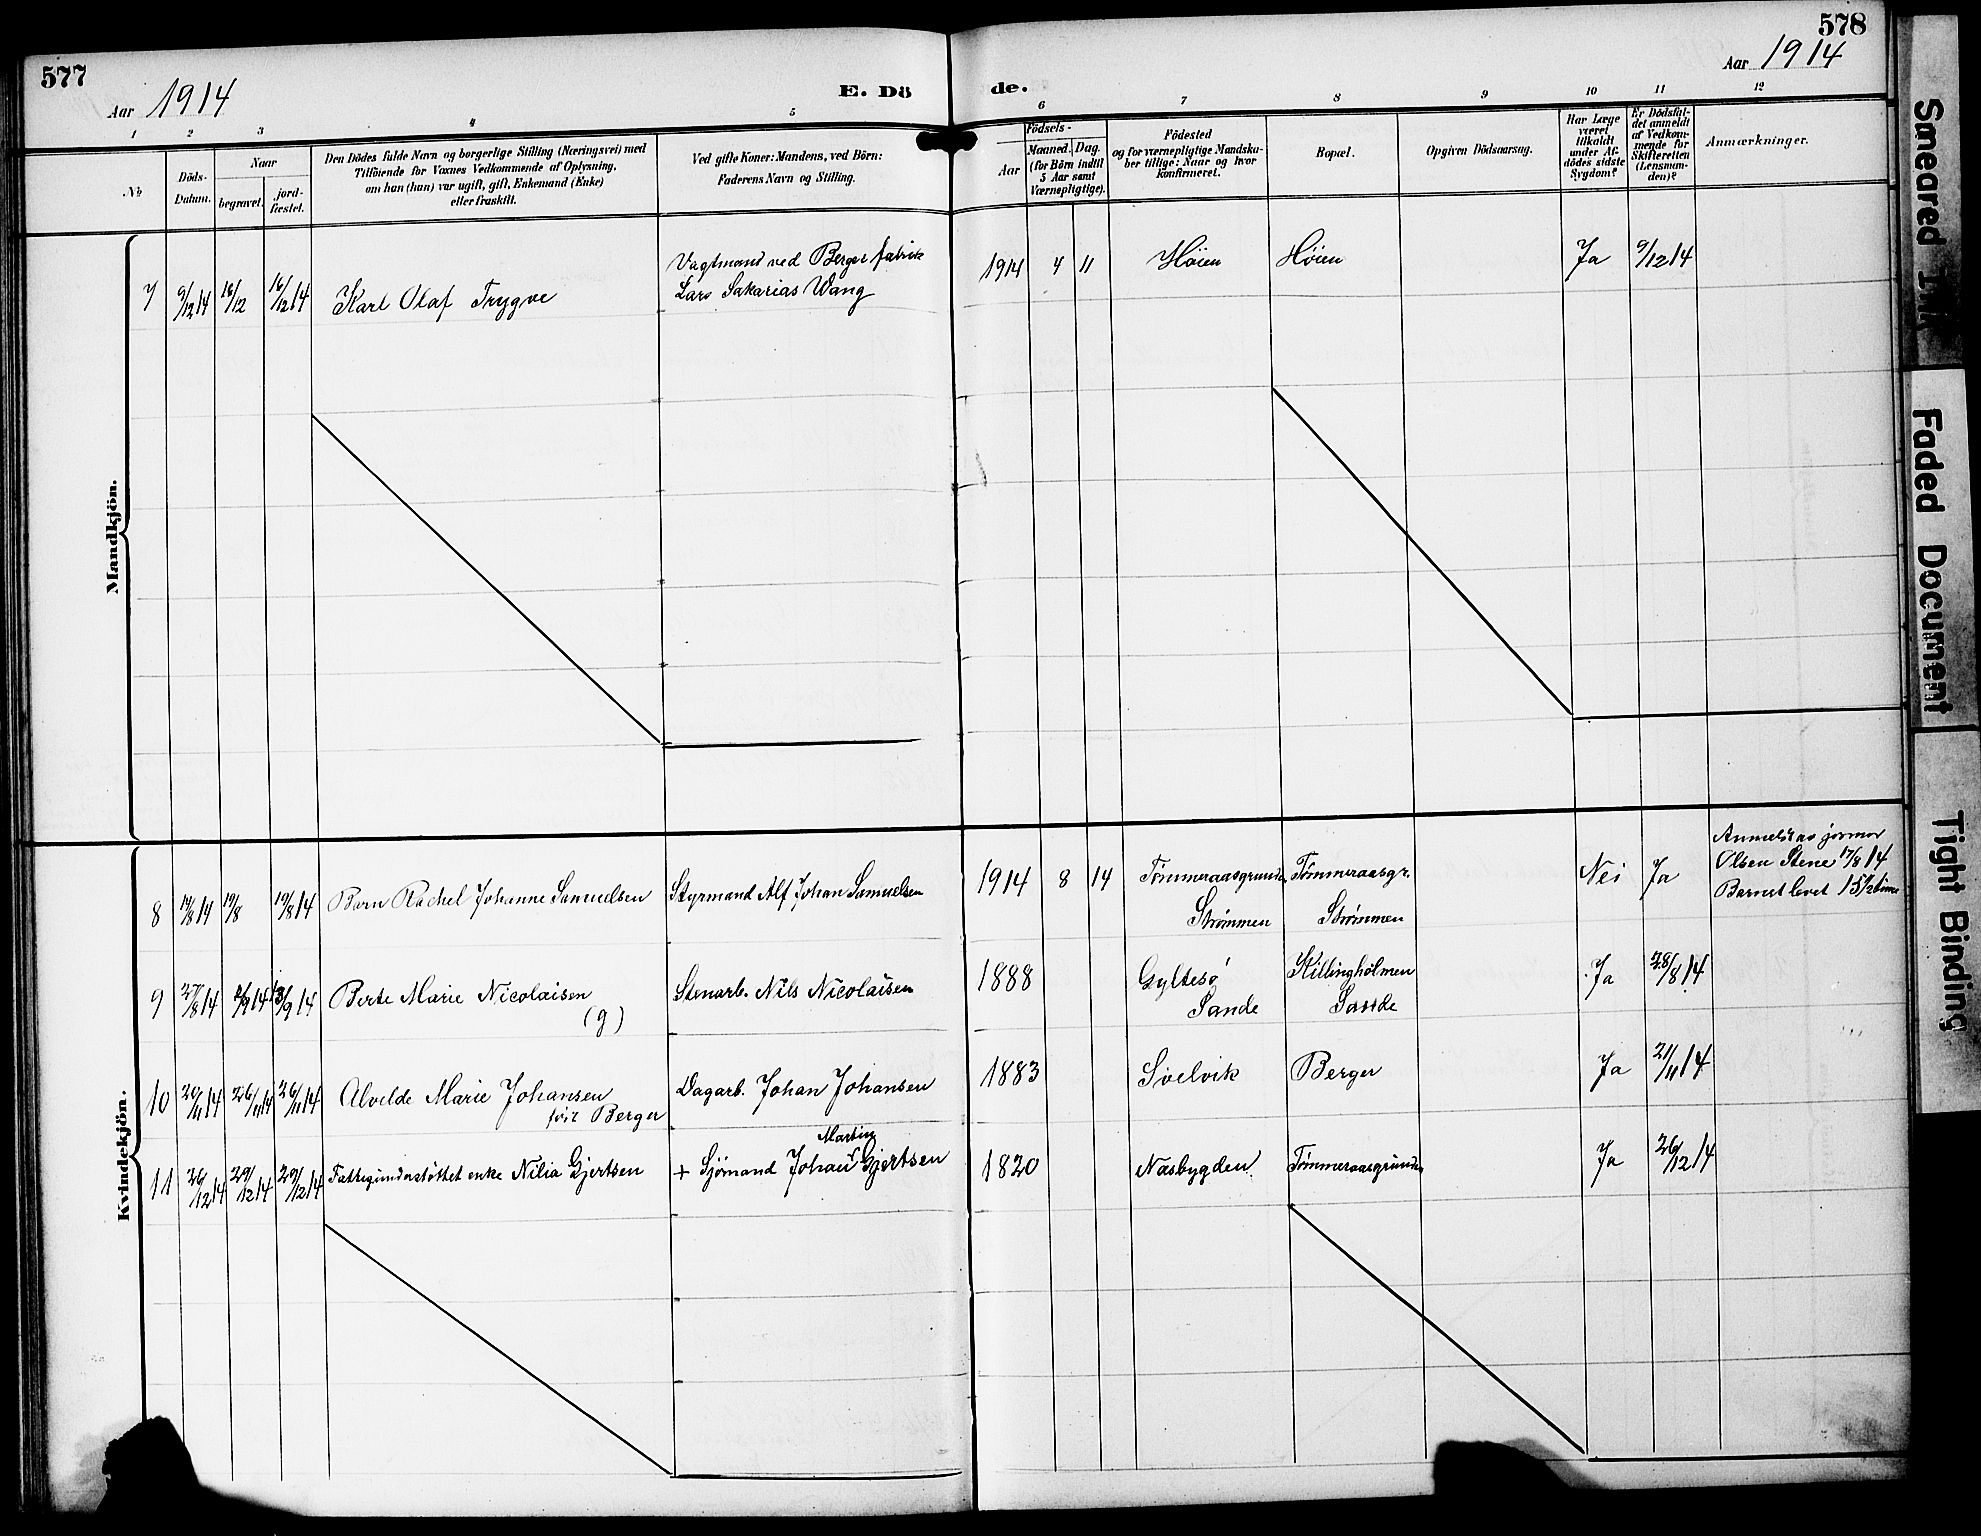 577
Aar 1914
E. Dö
de.
578
Aar 1914
1 2 3 4 5 6 7 8 9 10 11 12
No
Döds-
Datum.
Naar
begravet.
jord-
fæstet.
Den Dödes fulde Navn og borgerlige Stilling (Næringsvei) med
Tilföiende for Voxnes Vedkommende af Oplysning,
om han (hun) var ugift, gift, Enkemand (Enke)
eller fraskilt.
Ved gifte Koner: Mandens, ved Börn:
Faderens Navn og Stilling.
Födsels-
Aar
Maaned. Dag.
(for Börn indtil
5 Aar samt
Værnepligtige).
Födested
og for værnepligtige Mandska-
ber tillige: Naar og hvor
konfirmeret.
Bopæl.
Opgiven Dödsaarsag.
Har Læge
været
tilkaldt
under Af-
dödes sidste
Sygdom?
Er Dödsfal-
det anmeldt
af Vedkom-
mende for
Skifteretten
(Lensman-
den)?
Anmærkninger.
Mandkjön.
7 9/12 14 16/12 16/12 14 Karl Olaf Trygve
Vagtmand ved Berger fabrik
Lars Sakarias Wang
1914 4 11 Höien Höien Ja 9/12 14
Kvindekjön.
8 14 19/8 19/8 14 Barn Rachel Johanne Samuelsen Styrmand Alf Johan Samuelsen
1914 8 14 Tømmeraasgrunden Tømmeraasgr. Nei Ja
Strømmen Strømmen
Anmeldt av jormor
Olsen Stene 17/8 14
Barnet levet 15 1/2 time
9 27/8 14 2/9 14 13/9 14 Berte Marie Nicolaisen Stenarb. Nils Nicolaisen
(g)
1888 Gyltesø Killingholmen Ja 28/8 14
Sande Sande
10 20/11 14 26/11 14 26/11 14 Alvelde Marie Johansen Dagarb. Johan Johansen
født Berger
1883 Svelvik Berger Ja 21/11 14
11 26/12 14 29/12 14 29/12 14 Fattigunderstøttet enke Nilia Gjertsen + Sjømand Johan Martin Gjertsen
1820 Næsbygden Tømmeraasgrunden Ja 26/12 14
Smeared Ink
Faded Document
Tight Binding